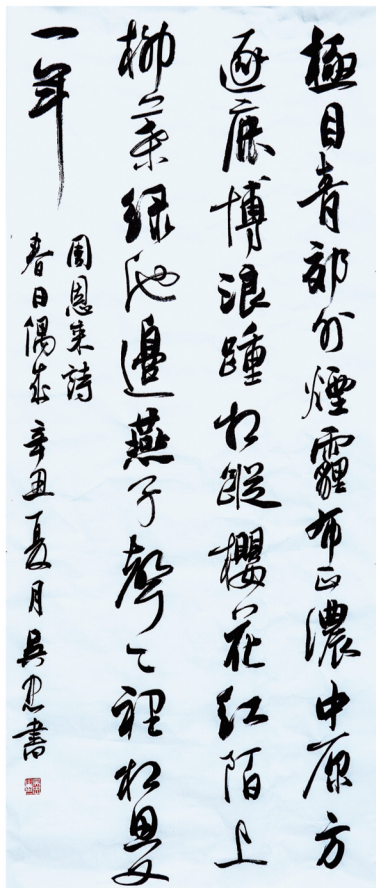 極目青郊外煙霾布正濃中原方
逐鹿博浪踵相蹤櫻花紅陌上
柳葉绿池邊燕子聲々裡相思又
一年
周恩来詩
春日偶成 辛丑夏月吳書